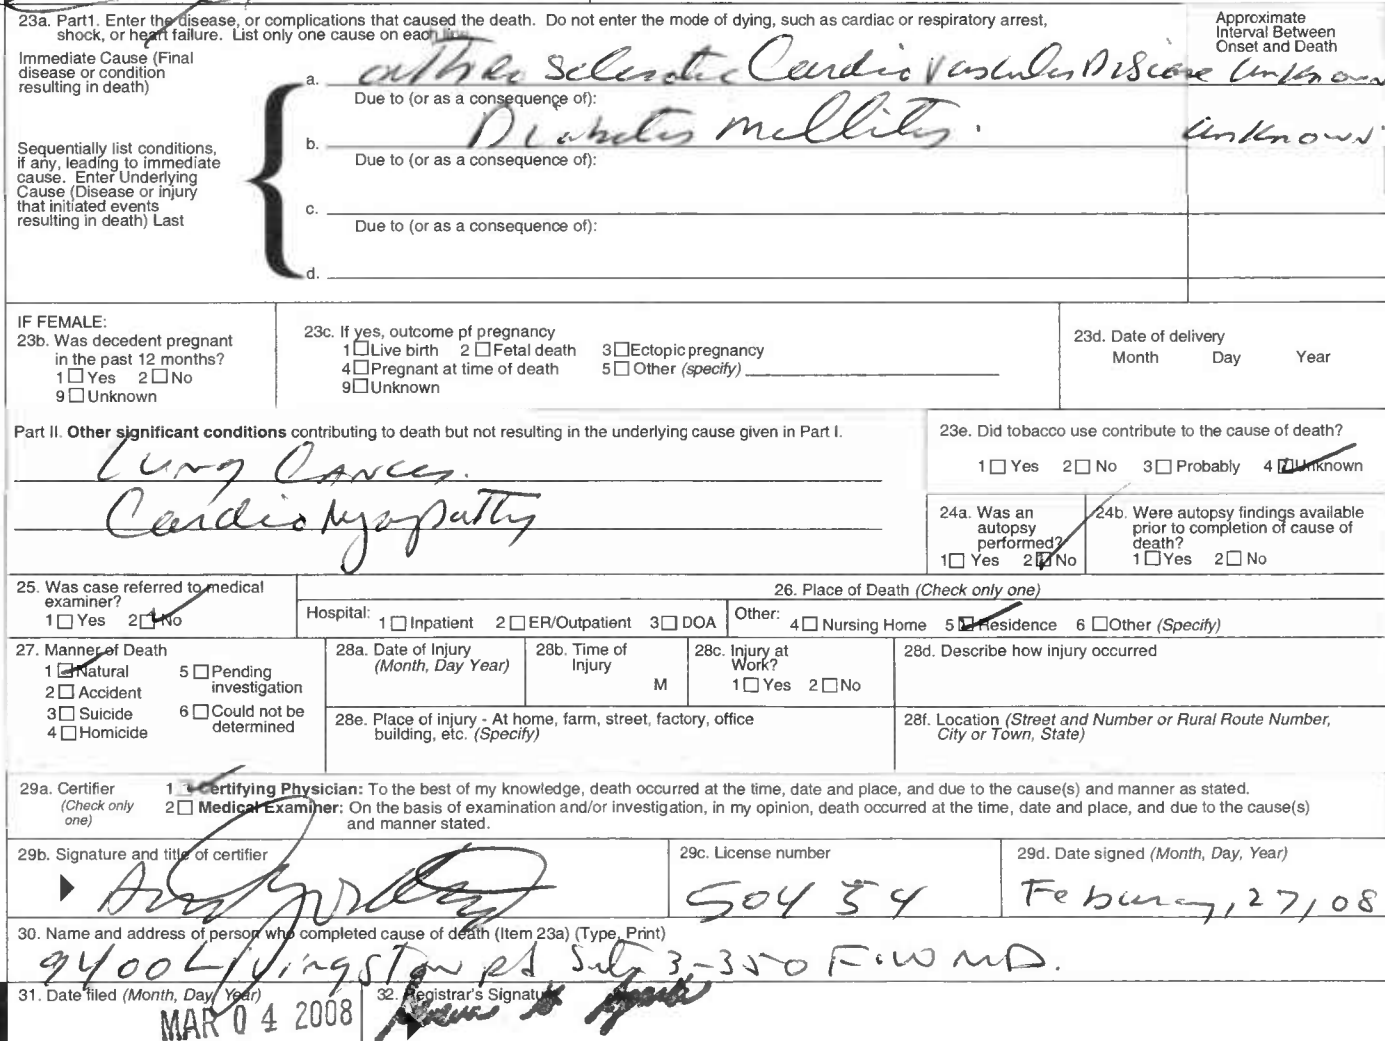 23a. Part1. Enter the disease, or complications that caused the death. Do not enter the mode of dying, such as cardiac or respiratory arrest,
shock, or heart failure. List only one cause on each line.
Approximate
Interval Between
Onset and Death
Immediate Cause (Final
disease or condition
resulting in death)
a. Sclerotic Cardio Vascular Disease unknown
Due to (or as a consequence of):
Sequentially list conditions,
if any, leading to immediate
cause. Enter Underlying
Cause (Disease or injury
that initiated events
resulting in death) Last
b. Diabetes mellitus. unknown
Due to (or as a consequence of):
c.
Due to (or as a consequence of):
d.
IF FEMALE:
23b. Was decedent pregnant
in the past 12 months?
1 Yes 2 No
9 Unknown
23c. If yes, outcome pf pregnancy
1 Live birth 2 Fetal death 3 Ectopic pregnancy
4 Pregnant at time of death 5 Other (specify)
9 Unknown
23d. Date of delivery
Month Day Year
Part II. Other significant conditions contributing to death but not resulting in the underlying cause given in Part I.
Lung Cancer.
Cardiomyopathy
23e. Did tobacco use contribute to the cause of death?
1 Yes 2 No 3 Probably 4 Unknown
24a. Was an
autopsy
performed?
1 Yes 2 No
24b. Were autopsy findings available
prior to completion of cause of
death?
1 Yes 2 No
25. Was case referred to medical
examiner?
1 Yes 2 No
26. Place of Death (Check only one)
Hospital: 1 Inpatient 2 ER/Outpatient 3 DOA Other: 4 Nursing Home 5 Residence 6 Other (Specify)
27. Manner of Death
1 Natural 5 Pending
investigation
2 Accident
3 Suicide 6 Could not be
determined
4 Homicide
28a. Date of Injury
(Month, Day Year)
28b. Time of
Injury
M
28c. Injury at
Work?
1 Yes 2 No
28d. Describe how injury occurred
28e. Place of injury - At home, farm, street, factory, office
building, etc. (Specify)
28f. Location (Street and Number or Rural Route Number,
City or Town, State)
29a. Certifier
(Check only
one)
1 Certifying Physician: To the best of my knowledge, death occurred at the time, date and place, and due to the cause(s) and manner as stated.
2 Medical Examiner: On the basis of examination and/or investigation, in my opinion, death occurred at the time, date and place, and due to the cause(s)
and manner stated.
29b. Signature and title of certifier
29c. License number
50454
29d. Date signed (Month, Day, Year)
Feburary, 27, 08
30. Name and address of person who completed cause of death (Item 23a) (Type, Print)
9400 Livingston Rd Suite 3-350 F.W MD.
31. Date filed (Month, Day, Year)
MAR 04 2008
32. Registrar's Signature